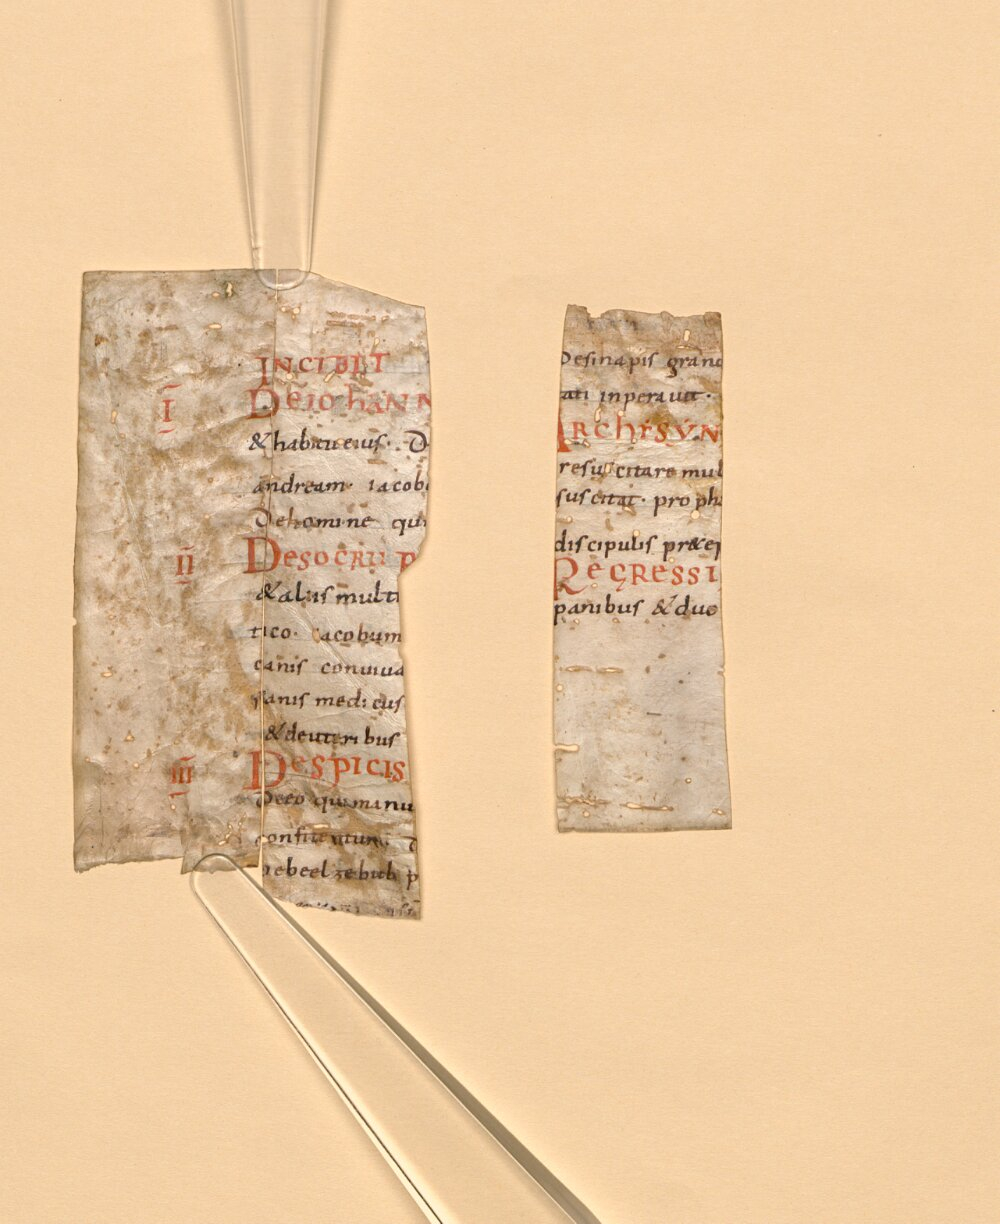 INCIPIT
I DEIOHANN
& habitu eius. D
andream. iacob
De homine qui
II DESOCRU P
& aliis multi
tico. iacobum
canis conuiua
sanis medicus
& deuteri bus
III DESPICIS
Deeo qui manu
confitentur.
beelzebub p
De sinapis grano
tati inperauit.
ARCHISYN
resuscitare mul
suscitat. proph
discipulis præep
REGRESSI
panibus & duo